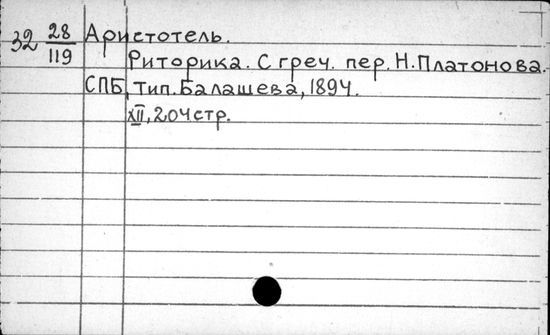 32 28/119 Аристотель.
Риторика. С греч. пер. Н. Платонова.
СПБ, Тип. Балашева, 1894.
XII, 204 стр.